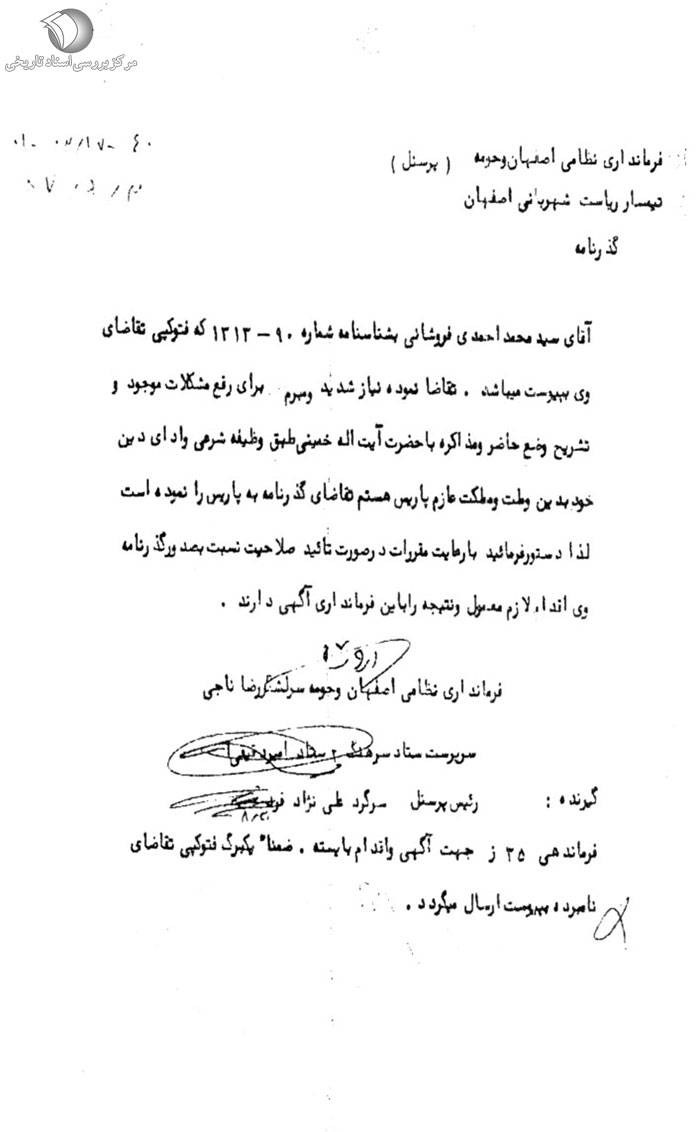 مرکز بررسی اسناد تاریخی
فرمانداری نظامی اصفهان وحومه ( پرسنل )
تیمسار ریاست شهربانی اصفهان
گذرنامه
آقای سید محمد احمدی فروشانی بشناسنامه شماره ۹۰ – ۱۳۱۳ که فتوکپی تقاضای
وی بپیوست میباشد . تقاضا نموده نیاز شدید ومبرم برای رفع مشکلات موجود و
تشریح وضع حاضر ومذاکره باحضرت آیت اله خمینی طبق وظیفه شرعی وادای دین
خود بدین وملت ومملکت عازم پاریس هستم تقاضای گذرنامه به پاریس را نموده است
لذا دستورفرمائید بارعایت مقررات درصورت تائید صلاحیت نسبت بصدورگذرنامه
وی اقدام لازم معمول ونتیجه رابابن فرمانداری آگهی دارند .
فرمانداری نظامی اصفهان وحومه سرلشگررضا ناجی
سرپرست ستاد سرهنگ ستاد
گیرنده : رئیس پرسنل سرگرد علی نژاد
فرماندهی ۳۵ ز جهت آگهی واقدام بایسته . ضمنا" یکبرگ فتوکپی تقاضای
نامبرده بپیوست ارسال میگردد .